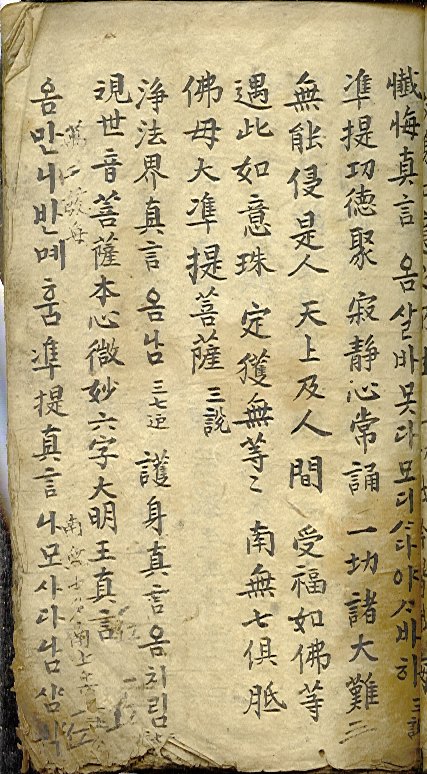 懺悔真言 옴 살바못다모디사다야사바하 三說
准提功德聚 寂静心常誦 一切諸大難
無能侵是人 天上及人間 受福如佛等
遇此如意珠 定獲無等〻 南無七俱胝
佛母大准提菩薩 三說
淨法界真言 옴남 三七遍 護身真言 옴치림
視世音菩薩本心微妙六字大明王真言
옴만니반메훔 准提真言 나모사다남삼